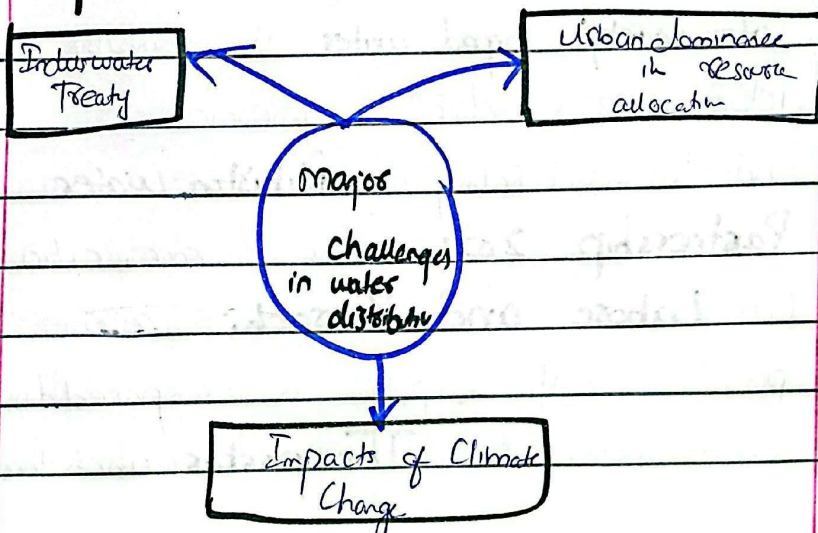 Induswater
Treaty
Urban dominance
in resource
allocation
Major
Challenges
in water
distribution
Impacts of Climate
Change